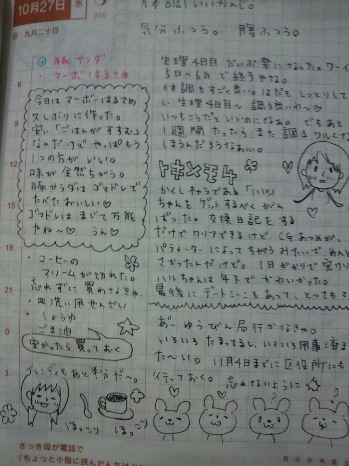 10月27日 水
旧:九月二十日
体調いいかんじ。
気分ふつう。 腹ふつう。
豚サラダ
マーボーはるさめ
今日はマーボーはるさめ
久しぶりに作った。
安い「ごはんがすすむ」
なんだけど やっぱもう
1つの方がいい。
味が全然ちがう。
豚サラダはゴマドレで
たべた おいしい♡
ゴマドレはまじで万能
やね〜♡ うん♡
・コーヒーの
マリームが切れた。
忘れずに買わなきゃ
・皿洗い用せんざい
・しょうゆ
・ごま油
安かったら買っておく
ブレンディもあと半分だ〜。
ほっこり ほっこり
生理4日目 だいぶ楽になった。ワーイ
5日〜6日で終るやな。
体調もすごく良い。はだもしっとりして
い 生理4日目〜 調子良いわ〜♡
いつもこうだといいのになぁ。 でもあと
1週間たったら また調子ワルくな
るしまうんだろうなあい。
トキメモ4
かくしキャラである「いい」
ちゃんをゲットするべくがん
ばった。交換日記をする
だけでクリアできるけど、CGあつめが、
パラメーターによってちがうみたいでめんど
さかったんだけど。 1日がかりで全クリ
ハルちゃんは年下でかわいかった。
最後にデートシーンもあって、とってもマ
あ〜 ゆうびん局行かなきゃ。
いろいろたまってるし、いろいろ用事済ま
た〜い。 11月4日までに区役所にも
行っておく。 忘れないように☆
さっき母が電話で
「ちょっと小腹に挟んだんだけど